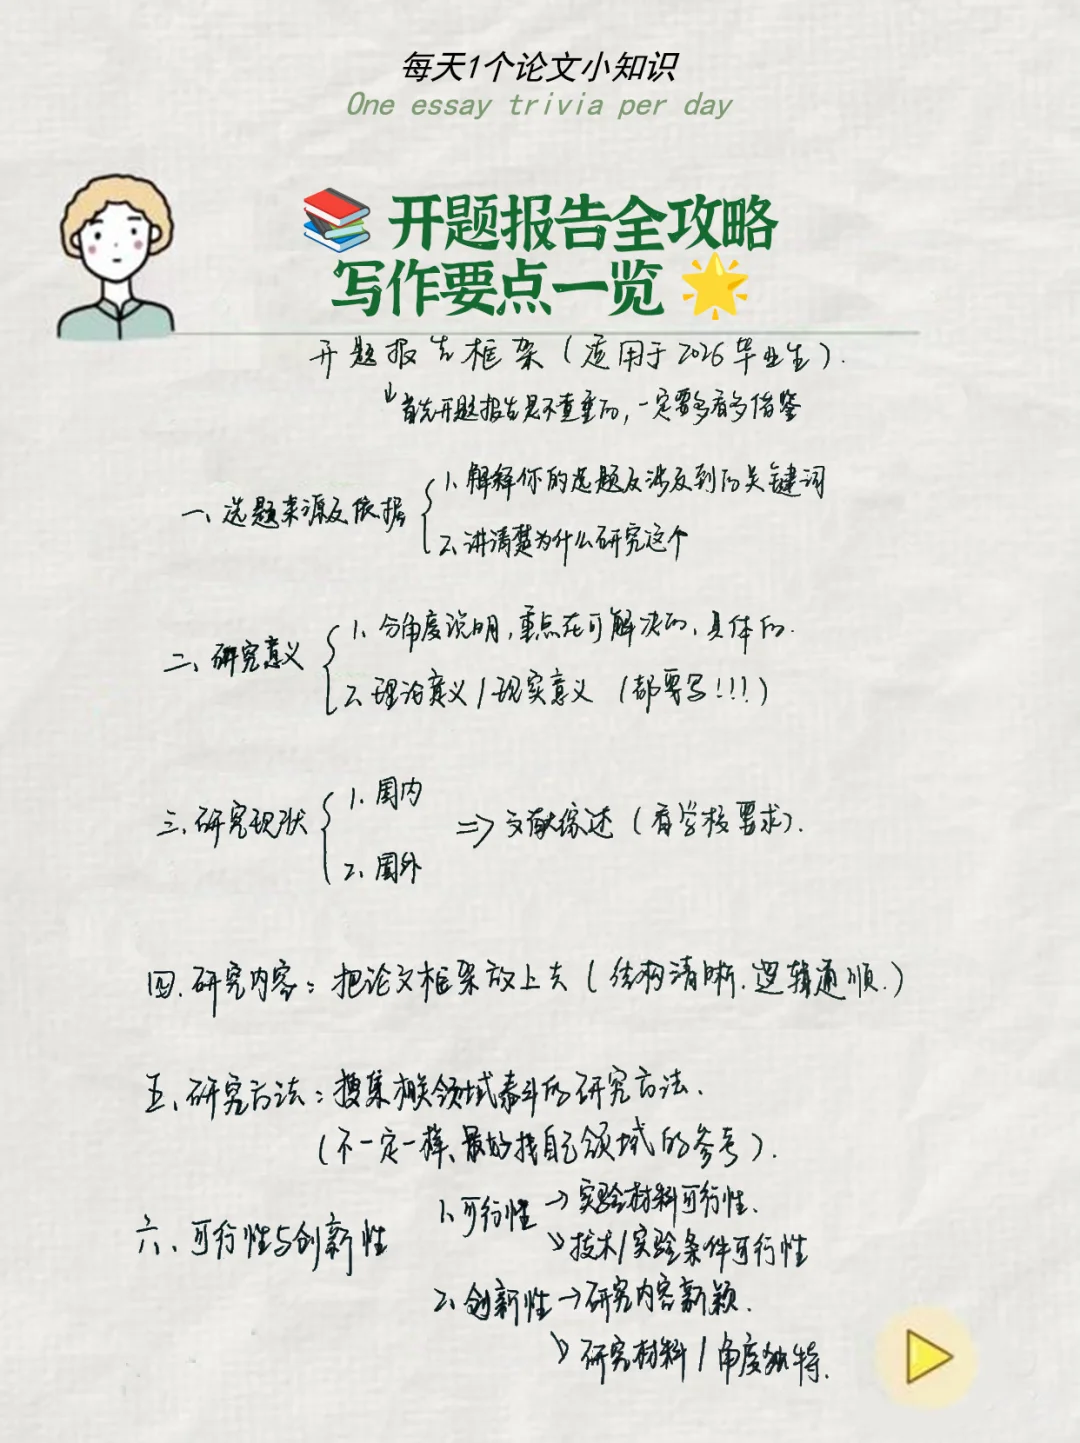 每天1个论文小知识
One essay trivia per day
开题报告全攻略
写作要点一览
开题报告框架(适用于2026毕业生).
首先开题报告是不查重的,一定要多看多借鉴
一、选题来源及依据
1、解释你的选题及涉及到的关键词
2、讲清楚为什么研究这个
二、研究意义
1、分角度说明,重点在可解决的、具体的.
2、理论意义/现实意义 (都要写!!!)
三、研究现状
1、国内
2、国外
=> 文献综述(看学校要求).
四、研究内容:把论文框架放上去(结构清晰、逻辑通顺.)
五、研究方法:搜集相关领域泰斗的研究方法、
(不一定一样、最好找自己领域的参考).
六、可行性与创新性
1、可行性→实验材料可行性、
↘技术/实验条件可行性
2、创新性→研究内容新颖、
↘研究材料/角度独特.